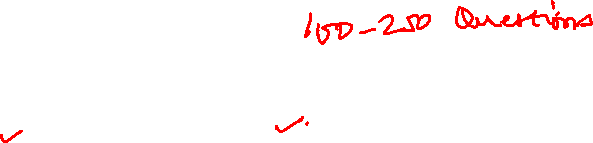 100-250 Questions